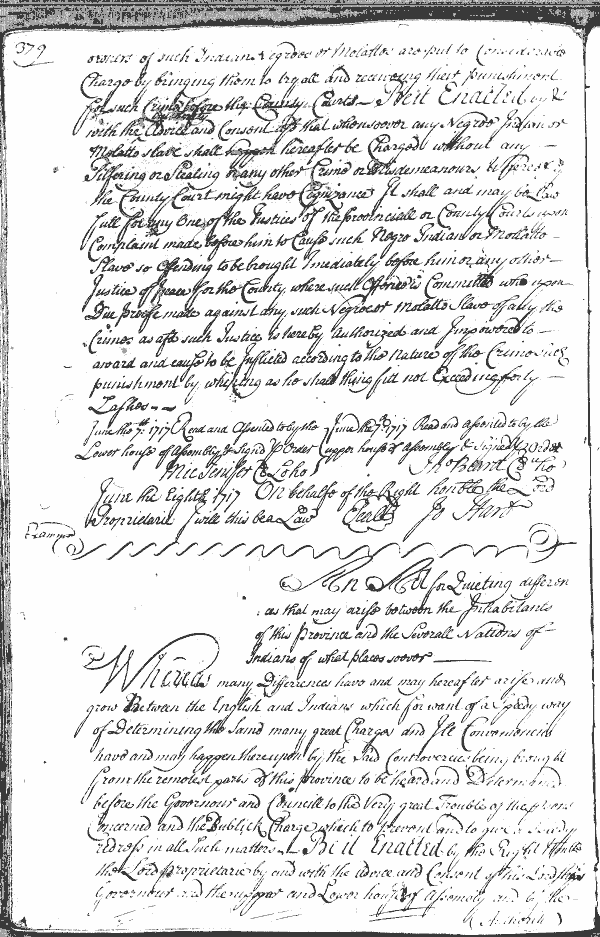 379
owners of such Indians Negroes or Molattos are put to Considerable
Charge by bringing them to tryall and receiveing their punishment
for such Crimes before the County Courts Be it Enacted by &
with the Advice and Consent afd that whensoever any Negroe Indian or
Molatto slave shall happen hereafter be Charged without any
Pilfering or Stealing or any other Crime or Misdemeanours
the County Court might have Cognizance It shall and may be Law
full for any One of the Justices of the provinciall or County Courts upon
Complaint made before him to Cause such Negro Indian or Mollatto
Slave so Offending to be brought Imediately before him or any other
Justice of Peace for the County where such Offence is Committed who upon
Due proofe made against any such Negroe or Molatto Slave of any the
Crimes as afd such Justice is hereby Authorized and Impowered to
award and cause to be Inflicted according to the Nature of the Crime such
punishment by whiping as he shall thing fitt not Exceeding forty
Lashes
June the 7th 1717 Read and Assented to by the June the 7th 1717 Read and assented to by the
Lower house of Assembly & Signd p Order Upper house of Assembly & Signed p Order
Mic Jenifer Cl Lo ho Tho Beard Cl up ho
June the Eighth 1717 On behalfe of the Right honble the Lord
Proprietarie I will this be a Law Jo Hart
Examined
An Act for Quieting differen
ces that may arise between the Inhabitants
of this Province and the Severall Nations of
Indians of what place soever
Whereas many Differences have and may hereafter arise and
grow Between the English and Indians which for want of a Speedy way
of Determining the Same many great Charges and Ill Conveniencies
have and may happen thereupon by the Said Controversies being brought
from the remotest parts of this province to be heard and Determined
before the Governour and Councill to the Very great Trouble of the persons
Concerned and the Publick Charge which to prevent and to give a Speedy
redress in all Such matters Be it Enacted by the Right Honble
the Lord Proprietarie by and with the advice and Consent of his Lordships
Governour and the upper and Lower houses of Assembly and by the
(Authority)